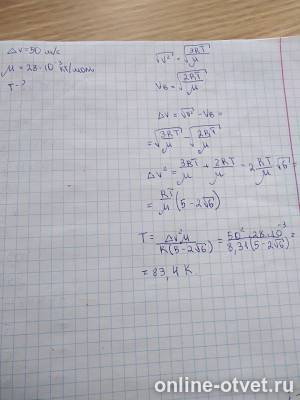 Δv = 50 м/с
μ = 28·10⁻³ кг/моль
T - ?
√v̅² = √(3RT/μ)
Vв = √(2RT/μ)
Δv = √v̅² - Vв =
= √(3RT/μ) - √(2RT/μ)
Δv² = 3RT/μ + 2RT/μ - 2 RT/μ √6 =
= RT/μ (5 - 2√6)
T = Δv²μ / R(5 - 2√6) = 50² · 28·10⁻³ / 8,31(5 - 2√6) =
= 83,4 K
online-otvet.ru